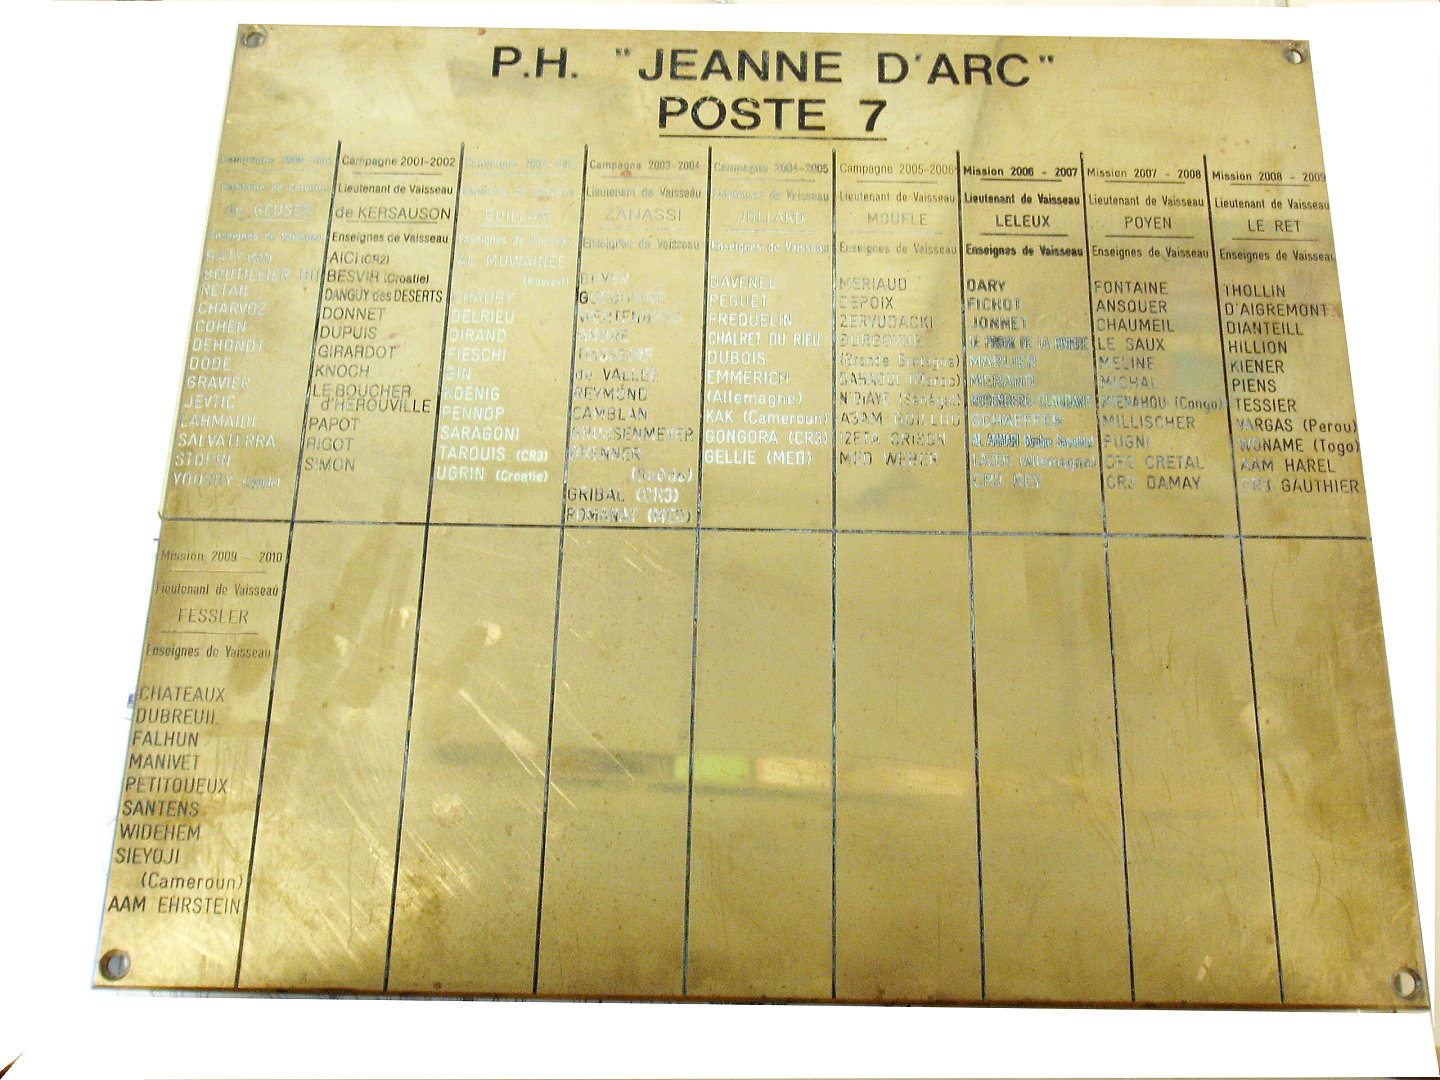 P.H. "JEANNE D'ARC"
POSTE 7
Campagne 2000-2001
Capitaine de Corvette
de GEUSER
Enseignes de Vaisseau
BATY (CR3)
BOUTILLIER DU
RETAIL
CHARVOZ
COHEN
DEHONDT
DODE
GRAVIER
JEVTIC
LAHMAIDI
SALVATERRA
STOPIN
YOUSRY
Campagne 2001-2002
Lieutenant de Vaisseau
de KERSAUSON
Enseignes de Vaisseau
AICI (CR2)
BESVIH (Croatie)
DANGUY des DESERTS
DONNET
DUPUIS
GIRARDOT
KNOCH
LE BOUCHER
d'HEROUVILLE
PAPOT
RIGOT
SIMON
Campagne 2002-2003
GUILLAM
Enseignes de Vaisseau
AL MUWAINEE
(Koweit)
CHAUBY
DELRIEU
DIRAND
FIESCHI
GIN
KOENIG
PENNOP
SARAGONI
TARQUIS (CR3)
UGRIN (Croatie)
Campagne 2003-2004
Lieutenant de Vaisseau
ZANASSI
Enseignes de Vaisseau
de VALLEE
REYMOND
CAMBLAN
(Suède)
GRIBAL (CR3)
ROMANAT (MED)
Campagne 2004-2005
Lieutenant de Vaisseau
JOLLARD
Enseignes de Vaisseau
DAVENEL
PEGUET
FREQUELIN
CHALRET DU RIEU
DUBOIS
EMMERICH
(Allemagne)
KAK (Cameroun)
GONGORA (CR3)
GELLIE (MED)
Campagne 2005-2006
Lieutenant de Vaisseau
MOUFLE
Enseignes de Vaisseau
MERIAUD
DEPOIX
ZERVUDACKI
(Grande Bretagne)
(Maroc)
N'DIAYE (Sénégal)
MED WEBER
Mission 2006 - 2007
Lieutenant de Vaisseau
LELEUX
Enseignes de Vaisseau
DARY
FICHOT
JONNET
MARLIER
MERAND
SCHAEFFER
LAZER (Allemagne)
CR3 REY
Mission 2007 - 2008
Lieutenant de Vaisseau
POYEN
Enseignes de Vaisseau
FONTAINE
ANSQUER
CHAUMEIL
LE SAUX
MELINE
MICHAL
MIENAHOU (Congo)
MILLISCHER
PUGNI
CR2 CRETAL
CR3 DAMAY
Mission 2008 - 2009
Lieutenant de Vaisseau
LE RET
Enseignes de Vaisseau
THOLLIN
D'AIGREMONT
DIANTEILL
HILLION
KIENER
PIENS
TESSIER
VARGAS (Perou)
WONAME (Togo)
AAM HAREL
CR3 GAUTHIER
Mission 2009 - 2010
Lieutenant de Vaisseau
FESSLER
Enseignes de Vaisseau
CHATEAUX
DUBREUIL
FALHUN
MANIVET
PETITQUEUX
SANTENS
WIDEHEM
SIEYOJI
(Cameroun)
AAM EHRSTEIN